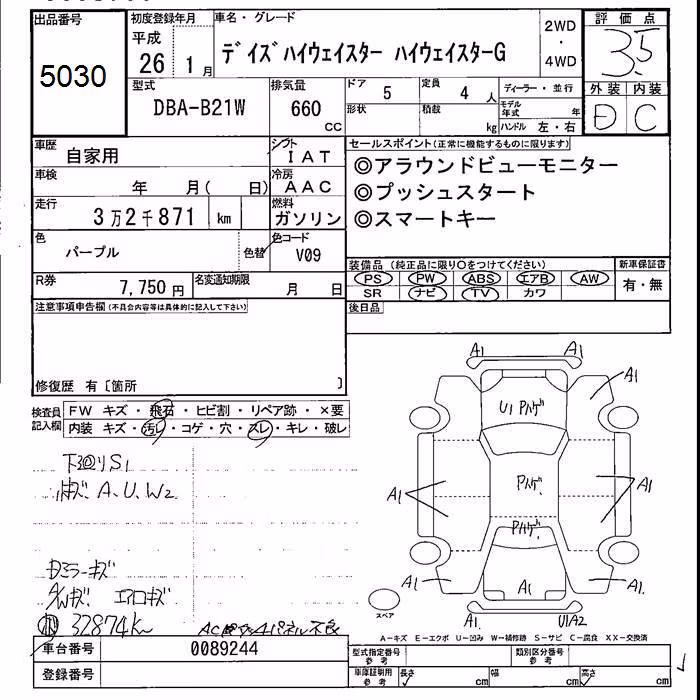 出品番号
5030
初度登録年月
平成
26 1月
車名・グレード
デイズハイウェイスター ハイウェイスターG
2WD
・
4WD
評価点
3.5
外装 内装
D C
型式
DBA-B21W
排気量
660
CC
ドア
5
定員
4 人
形状
積載
kg
ディーラー・並行
モデル年式 年
ハンドル 左・右
車歴
自家用
シフト
IAT
車検
年 月( 日)
冷房
AAC
走行
3万2千871 km
燃料
ガソリン
色
パープル
色替
色コード
V09
R券
7,750円
名変通知期限
月 日
セールスポイント(正常に機能するものに限ります)
◎アラウンドビューモニター
◎プッシュスタート
◎スマートキー
装備品(純正品に限り○をつけてください)
PS PW ABS エアB AW
SR ナビ TV カワ
新車保証書
有・無
後日品
注意事項申告欄(不具合内容等は具体的に記入して下さい)
修復歴 有〔箇所 〕
検査員記入欄
FW キズ・飛石・ヒビ割・リペア跡・×要
内装 キズ・汚レ・コゲ・穴・スレ・キレ・破レ
下廻りS1
小キズ、A、U、W2
ミラーキズ
A/Wキズ エアロキズ
32874k
A1 A1
A1
U1
A1 A1
A1 A1 A1
A1 U1A2
スペア
A−キズ E−エクボ U−凹み W−補修跡 S−サビ C−腐食 XX−交換済
車台番号
0089244
登録番号
型式指定番号
参考
類別区分番号
参考
車庫証明用
参考
長さ cm 幅 cm 高さ cm